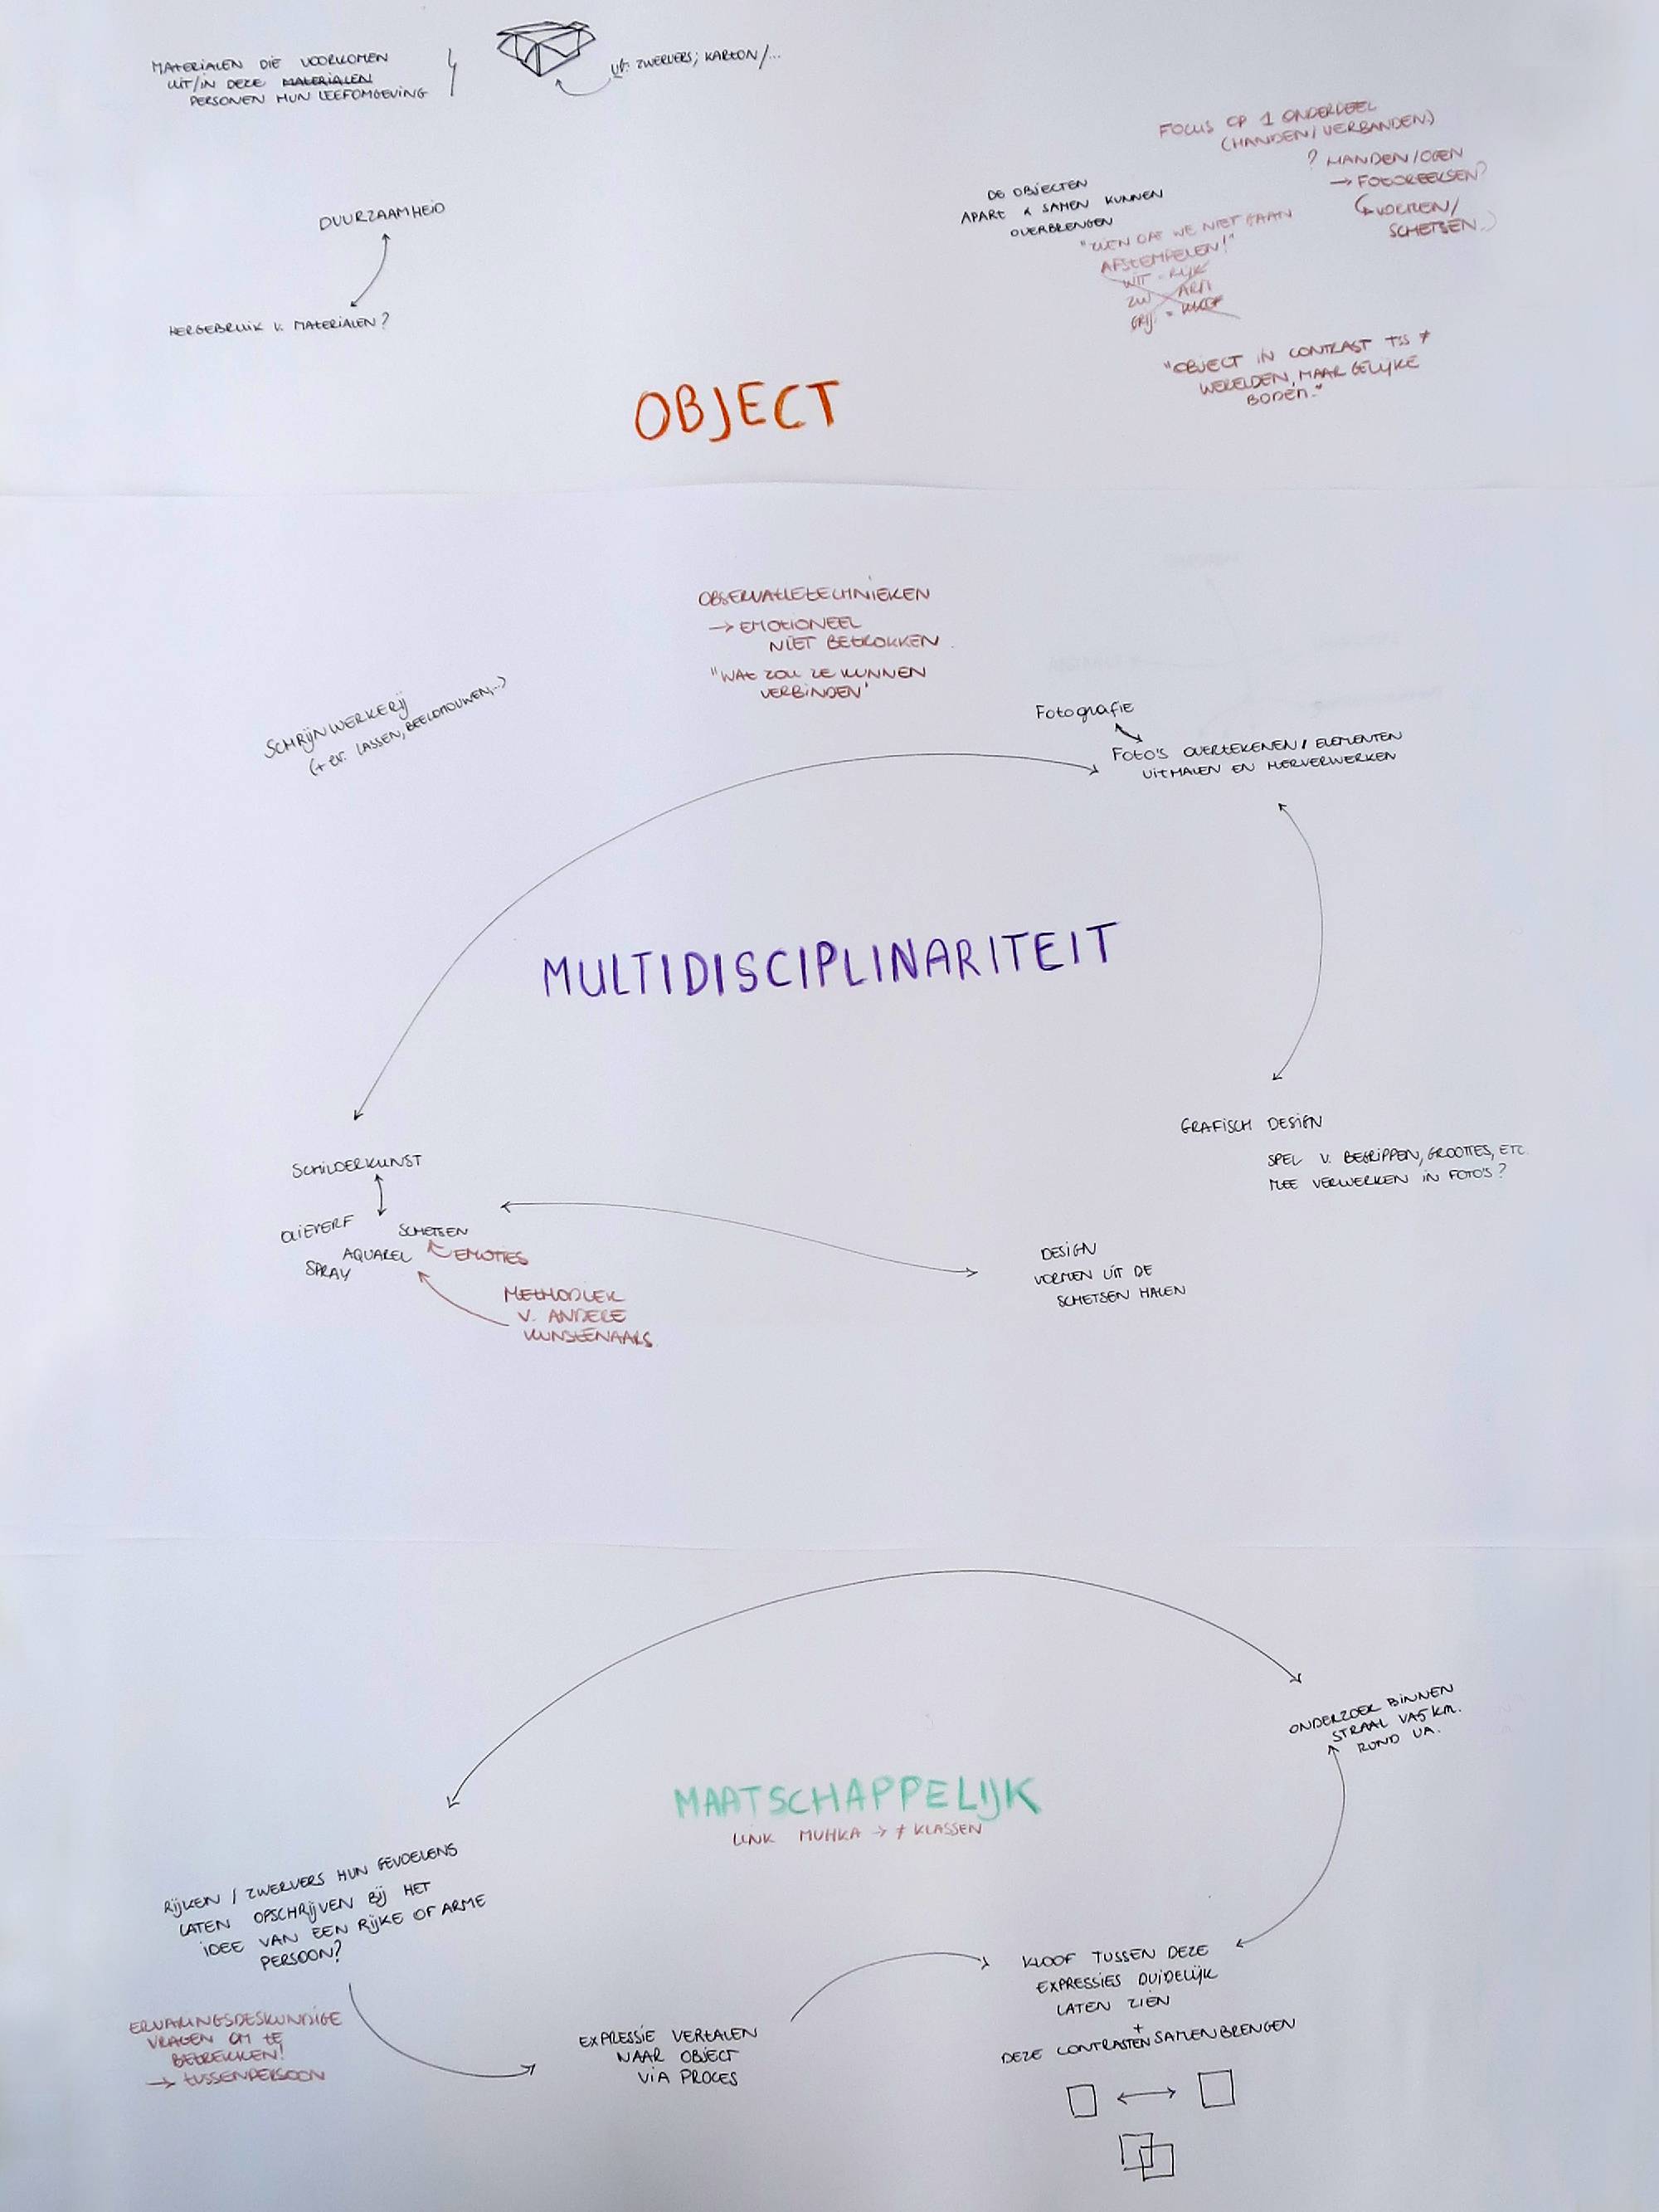 MATERIALEN DIE VOORKOMEN
UIT/IN DEZE MATERIALEN
PERSONEN HUN LEEFOMGEVING
VB: ZWERVERS; KARTON/...
DUURZAAMHEID
HERGEBRUIK V. MATERIALEN?
FOCUS OP 1 ONDERDEEL
(HANDEN/VERBANDEN)
? HANDEN/OGEN
→ FOTOREEKSEN?
(↳ VORMEN/
SCHETSEN...)
DE OBJECTEN
APART & SAMEN KUNNEN
OVERBRENGEN
DAT WE NIET GAAN
AFSTEMPELEN!"
WIT = RIJK
ZW ARM
GRIJ. =
"OBJECT IN CONTRAST TSS ≠
WERELDEN, MAAR GELIJKE
BODEN."
OBJECT
OBSERVATIETECHNIEKEN
→ EMOTIONEEL
NIET BETROKKEN
"WAT ZOU ZE KUNNEN
VERBINDEN"
SCHRIJNWERKERIJ
(+ EV. LASSEN, BEELDHOUWEN,...)
Fotografie
FOTO'S OVERTEKENEN / ELEMENTEN
UITHALEN EN HERVERWERKEN
MULTIDISCIPLINARITEIT
GRAFISCH DESIGN
SPEL V. BEGRIPPEN, GROOTTES, ETC.
MEE VERWERKEN IN FOTO'S?
SCHILDERKUNST
OLIEVERF SCHETSEN
AQUAREL EMOTIES
SPRAY
METHODIEK
V. ANDERE
KUNSTENAARS
DESIGN
VORMEN UIT DE
SCHETSEN HALEN
ONDERZOEK BINNEN
STRAAL VA 5 KM.
ROND UA.
MAATSCHAPPELIJK
LINK MUHKA → ≠ KLASSEN
RIJKEN / ZWERVERS HUN GEVOELENS
LATEN OPSCHRIJVEN BIJ HET
IDEE VAN EEN RIJKE OF ARME
PERSOON?
ERVARINGSDESKUNDIGE
VRAGEN OM TE
BETREKKEN!
→ TUSSENPERSOON
EXPRESSIE VERTALEN
NAAR OBJECT
VIA PROCES
KLOOF TUSSEN DEZE
EXPRESSIES DUIDELIJK
LATEN ZIEN
+
DEZE CONTRASTEN SAMENBRENGEN